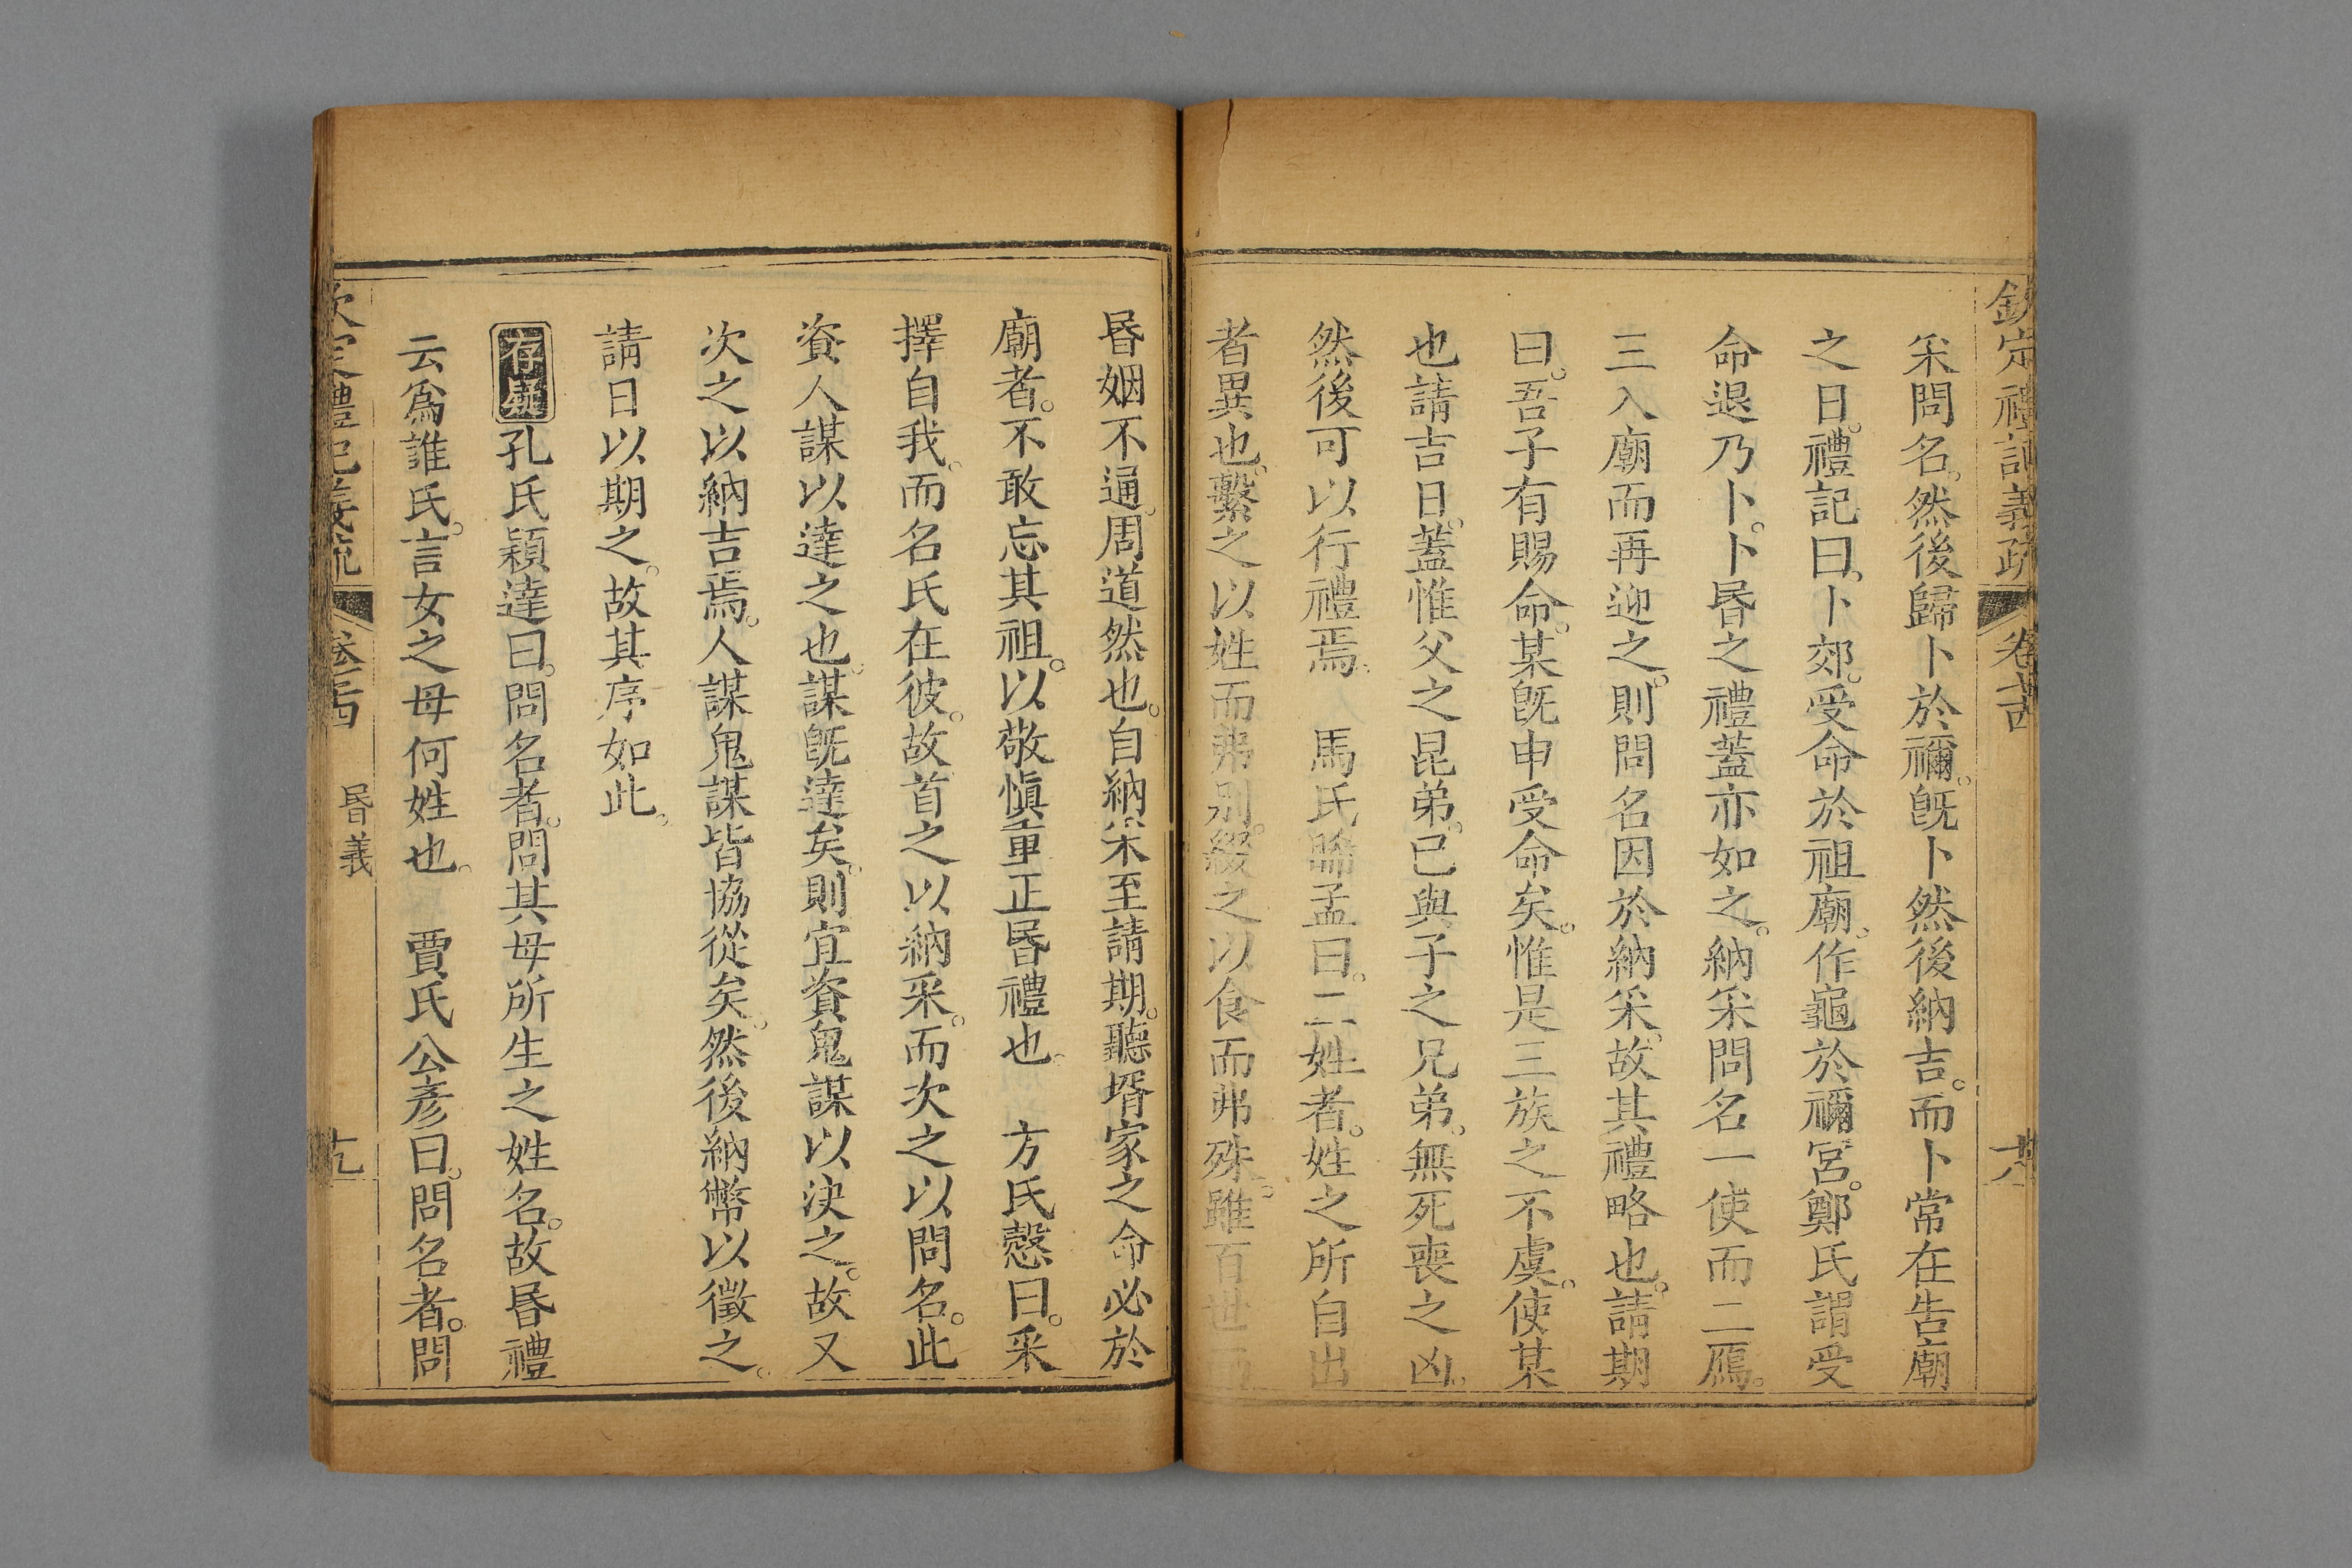 欽定禮記義疏 卷七十四 十八
采問名。然後歸卜於禰。旣卜然後納吉。而卜常在告廟
之日。禮記曰。卜郊。受命於祖廟。作龜於禰宮。鄭氏謂受
命退乃卜。卜昏之禮蓋亦如之。納采問名一使而二鴈。
三入廟而再迎之。則問名因於納采。故其禮略也。請期
曰。吾子有賜命。某旣申受命矣。惟是三族之不虞。使某
也請吉日。蓋惟父之昆弟。已與子之兄弟。無死喪之凶。
然後可以行禮焉。 馬氏晞孟曰。二姓者。姓之所自出
者異也。繫之以姓而弗別。綴之以食而弗殊。雖百世而
昬姻不通。周道然也。自納采至請期。聽壻家之命必於
廟者。不敢忘其祖。以敬愼重正昬禮也。 方氏慤曰。采
擇自我。而名氏在彼。故首之以納采。而次之以問名。此
資人謀以達之也。謀旣達矣。則宜資鬼謀以決之。故又
次之以納吉焉。人謀鬼謀皆協從矣。然後納幣以徵之。
請日以期之。故其序如此。
存疑 孔氏穎達曰。問名者。問其母所生之姓名。故昬禮
云爲誰氏。言女之母何姓也。 賈氏公彥曰。問名者。問
欽定禮記義疏 昬義 十九